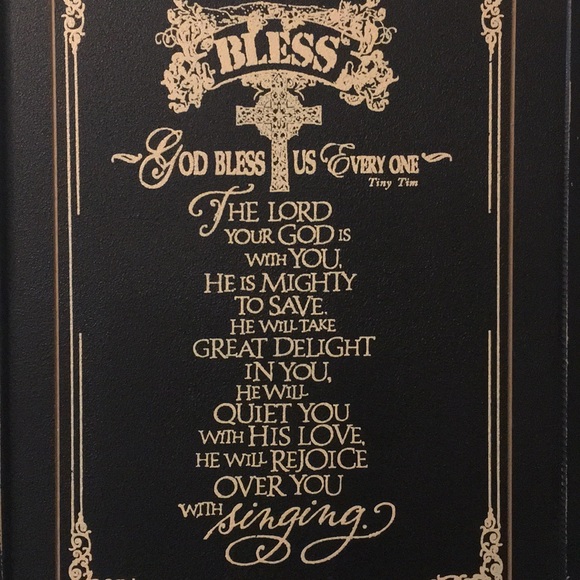 BLESS
GOD BLESS US EVERY ONE
Tiny Tim
THE LORD
YOUR GOD IS
WITH YOU,
HE IS MIGHTY
TO SAVE.
HE WILL TAKE
GREAT DELIGHT
IN YOU,
HE WILL
QUIET YOU
WITH HIS LOVE,
HE WILL REJOICE
OVER YOU
WITH singing.